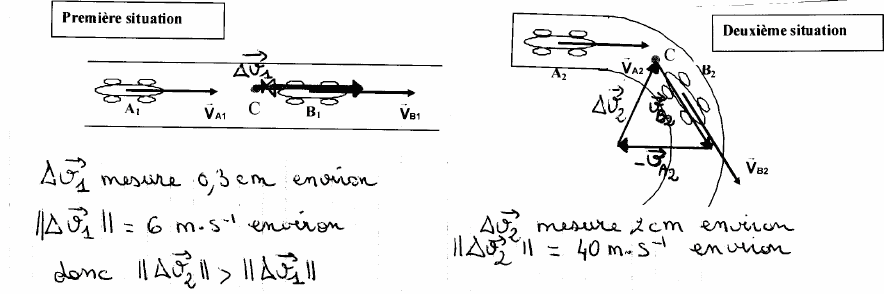 Première situation
Δv⃗₁
A₁
V⃗A1
C
B₁
V⃗B1
Δv⃗₁ mesure 0,3 cm environ
||Δv⃗₁|| = 6 m.s⁻¹ environ
donc ||Δv⃗₂|| > ||Δv⃗₁||
Deuxième situation
A₂
V⃗A2
C
B₂
Δv⃗₂
v⃗B2
-v⃗A2
V⃗B2
Δv⃗₂ mesure 2cm environ
||Δv⃗₂|| = 40 m.s⁻¹ environ